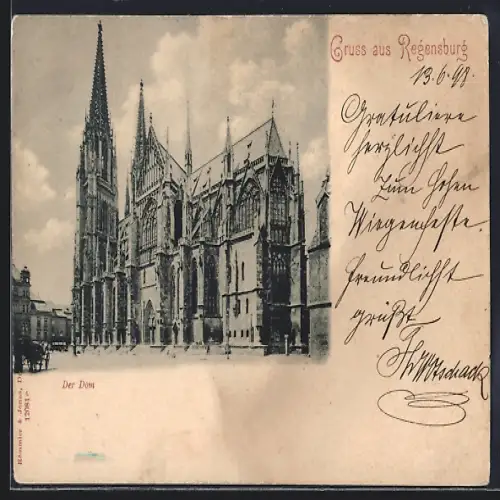 Gruss aus Regensburg
13.6.98.
Gratuliere
herzlichst
zum hohen
Wiegenfeste.
Freundlichst
grüßt
Der Dom
Römmler & Jonas, D
12081 c